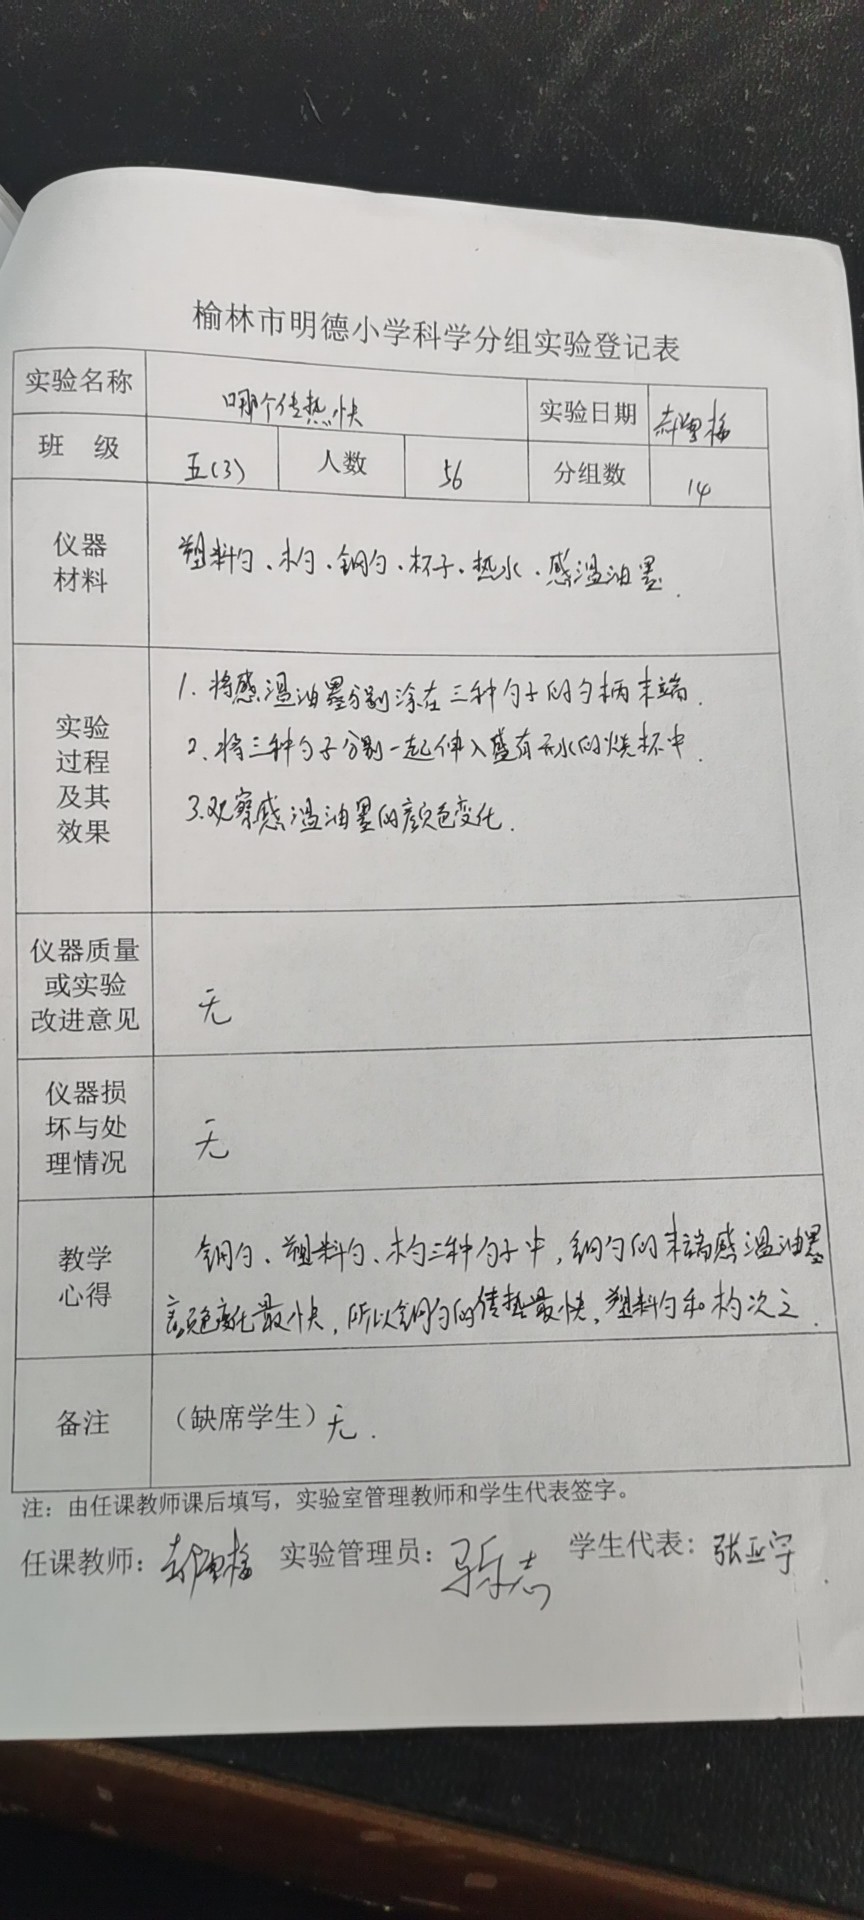 榆林市明德小学科学分组实验登记表
实验名称 哪个传热快 实验日期
班 级 五(3) 人数 56 分组数 14
仪器
材料
塑料勺、木勺、钢勺、杯子、热水、感温油墨.
实验
过程
及其
效果
1.将感温油墨分别涂在三种勺子的勺柄末端.
2.将三种勺子分别一起伸入盛有开水的烧杯中.
3.观察感温油墨的颜色变化.
仪器质量
或实验
改进意见
无
仪器损
坏与处
理情况
无
教学
心得
钢勺、塑料勺、木勺三种勺子中,钢勺的末端感温油墨
颜色变化最快,所以钢勺的传热最快,塑料勺和木勺次之.
备注
(缺席学生)无.
注:由任课教师课后填写,实验室管理教师和学生代表签字。
任课教师: 实验管理员: 学生代表:张亚宇